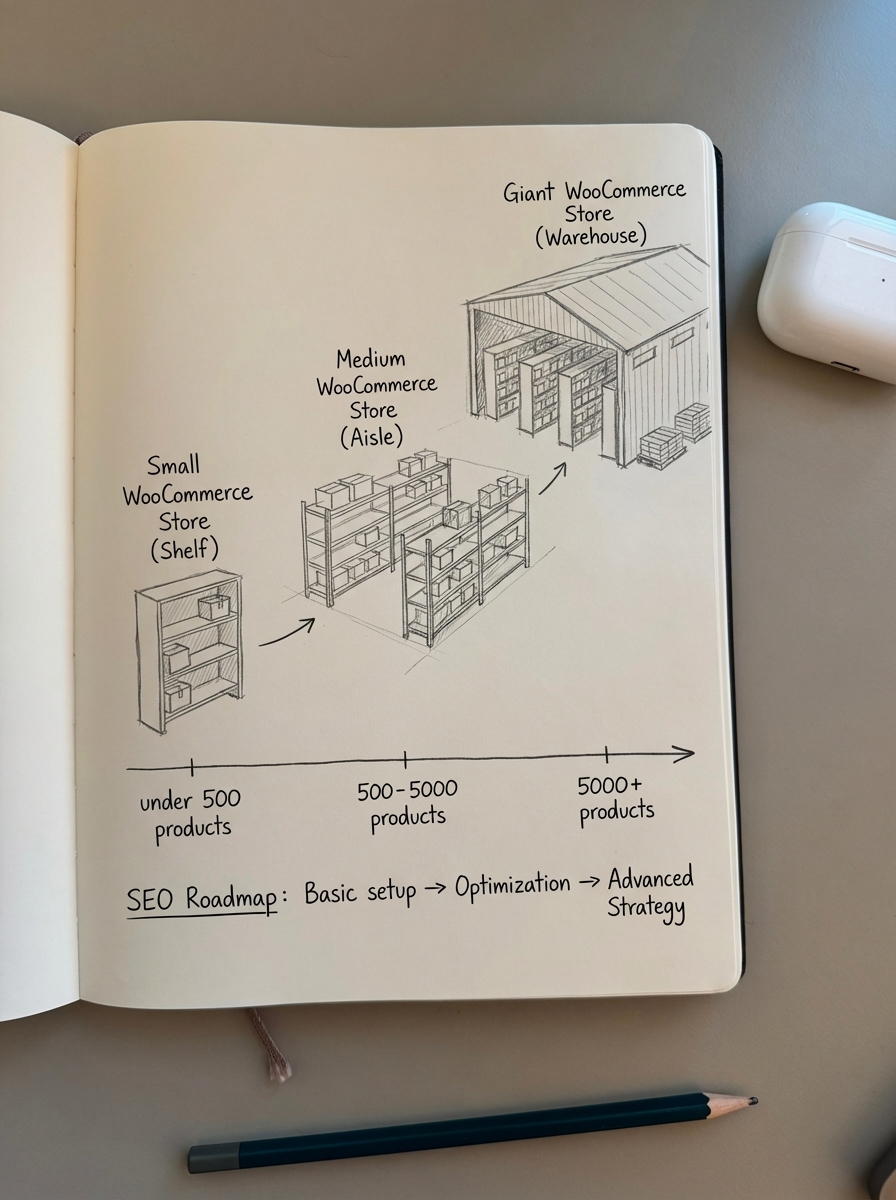 Giant WooCommerce
Store
(Warehouse)
Medium
WooCommerce
Store
(Aisle)
Small
WooCommerce
Store
(Shelf)
under 500
products
500-5000
products
5000+
products
SEO Roadmap: Basic setup → Optimization → Advanced
Strategy